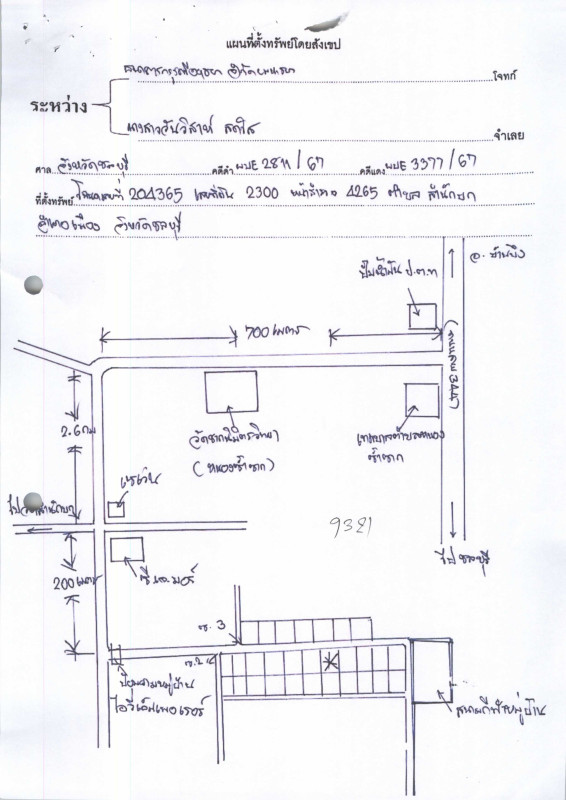 แผนที่ตั้งทรัพย์โดยสังเขป
ธนาคารกรุงศรีอยุธยา จำกัด (มหาชน)
โจทก์
ระหว่าง
นางสาววันวิสาห์ สดใส
จำเลย
ศาล จังหวัดชลบุรี คดีดำ ผบE 2811/67 คดีแดง ผบE 3377/67
ที่ตั้งทรัพย์ โฉนดเลขที่ 204365 เลขที่ดิน 2300 หน้าสำรวจ 4265 ตำบล สำนักบก
อำเภอเมือง จังหวัดชลบุรี
อ. บ้านบึง
ปั๊มน้ำมัน ป.ต.ท
700 เมตร
ถนนสาย 3447
2.6 กม
วัดซากนิมิตรวิทยา
(หนองซ้ำซาก)
เทศบาลตำบลหนอง
ซ้ำซาก
เซเว่น
ไปสำนักบก
9381
ไป ชลบุรี
200 เมตร
ซี.เจ.มอร์
ซ. 3
ซ. 2
ป้อมยามหมู่บ้าน
ไอวี่เอ็มเพอเรอร์
สนามกีฬาหมู่บ้าน